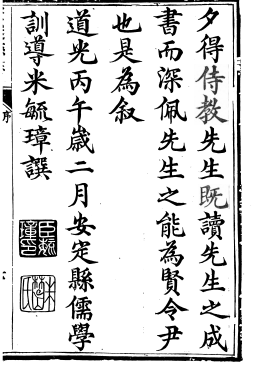 夕得侍教先生既讀先生之成
書而深佩先生之能為賢令尹
也是為叙
道光丙午歲二月安定縣儒學
訓導米毓璋譔
序